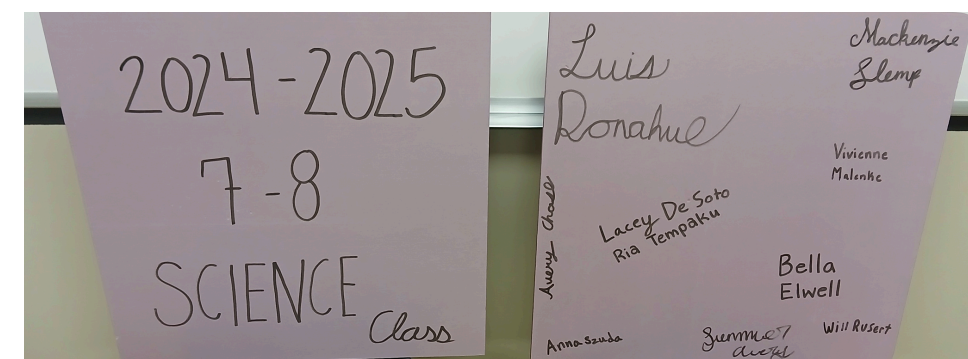 2024-2025
7-8
SCIENCE
Class
Luis
Donahue
Mackenzie
Slemp
Vivienne
Malenke
Avery Chase
Lacey De Soto
Ria Tempaku
Bella
Elwell
Anna Szuda
Summer
Will Rusert